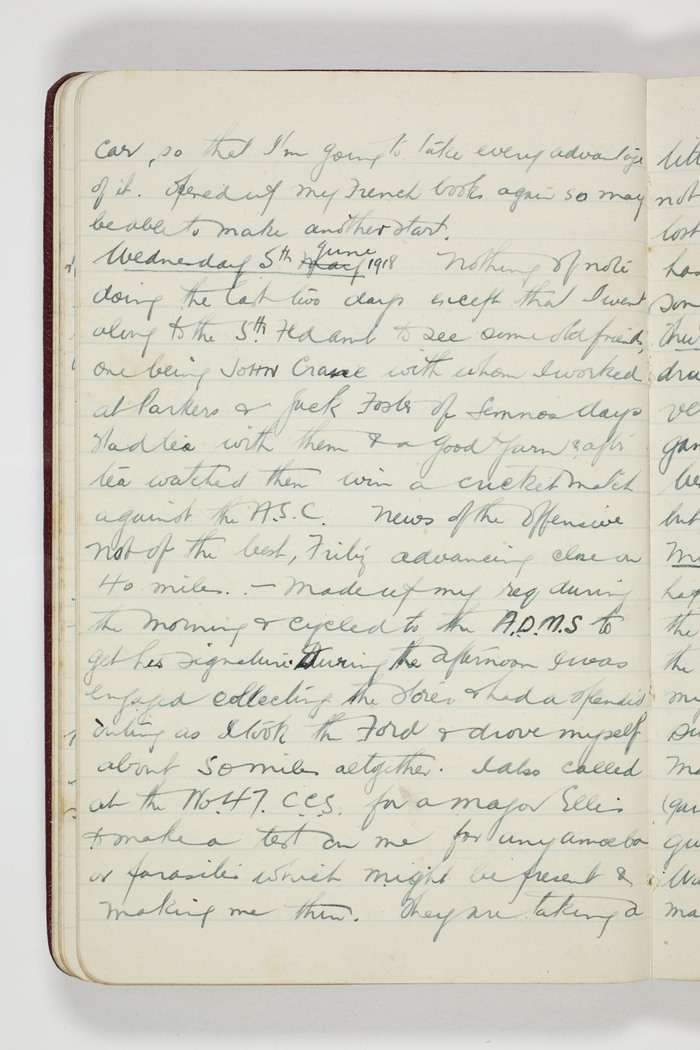 car, so that I'm going to take every advantage
of it. Opened up my French books again so may
be able to make another start.
Wednesday 5th May June 1918 Nothing of note
doing the last two days except that I went
along to the 5th Fd amb to see some old friends,
one being John Crane with whom I worked
at Parkers & Jack Foster of Lemnos days
Had tea with them & a good yarn & after
tea watched them win a cricket match
against the A.S.C. News of the Offensive
not of the best, Fritz advancing close on
40 miles. - Made up my req during
the morning & cycled to the A.D.M.S to
get his signature. During the afternoon I was
engaged collecting the stores & had a splendid
outing as I took the Ford & drove myself
about 50 miles altogether. I also called
at the No. 47. C.C.S. for a major Ellis
to make a test on me for any amoeba
or parasites which might be present &
making me thin. They are taking a
litt
not
lost
has
son
dra
ve
gam
but
the
the
my
Ma
gu
ma